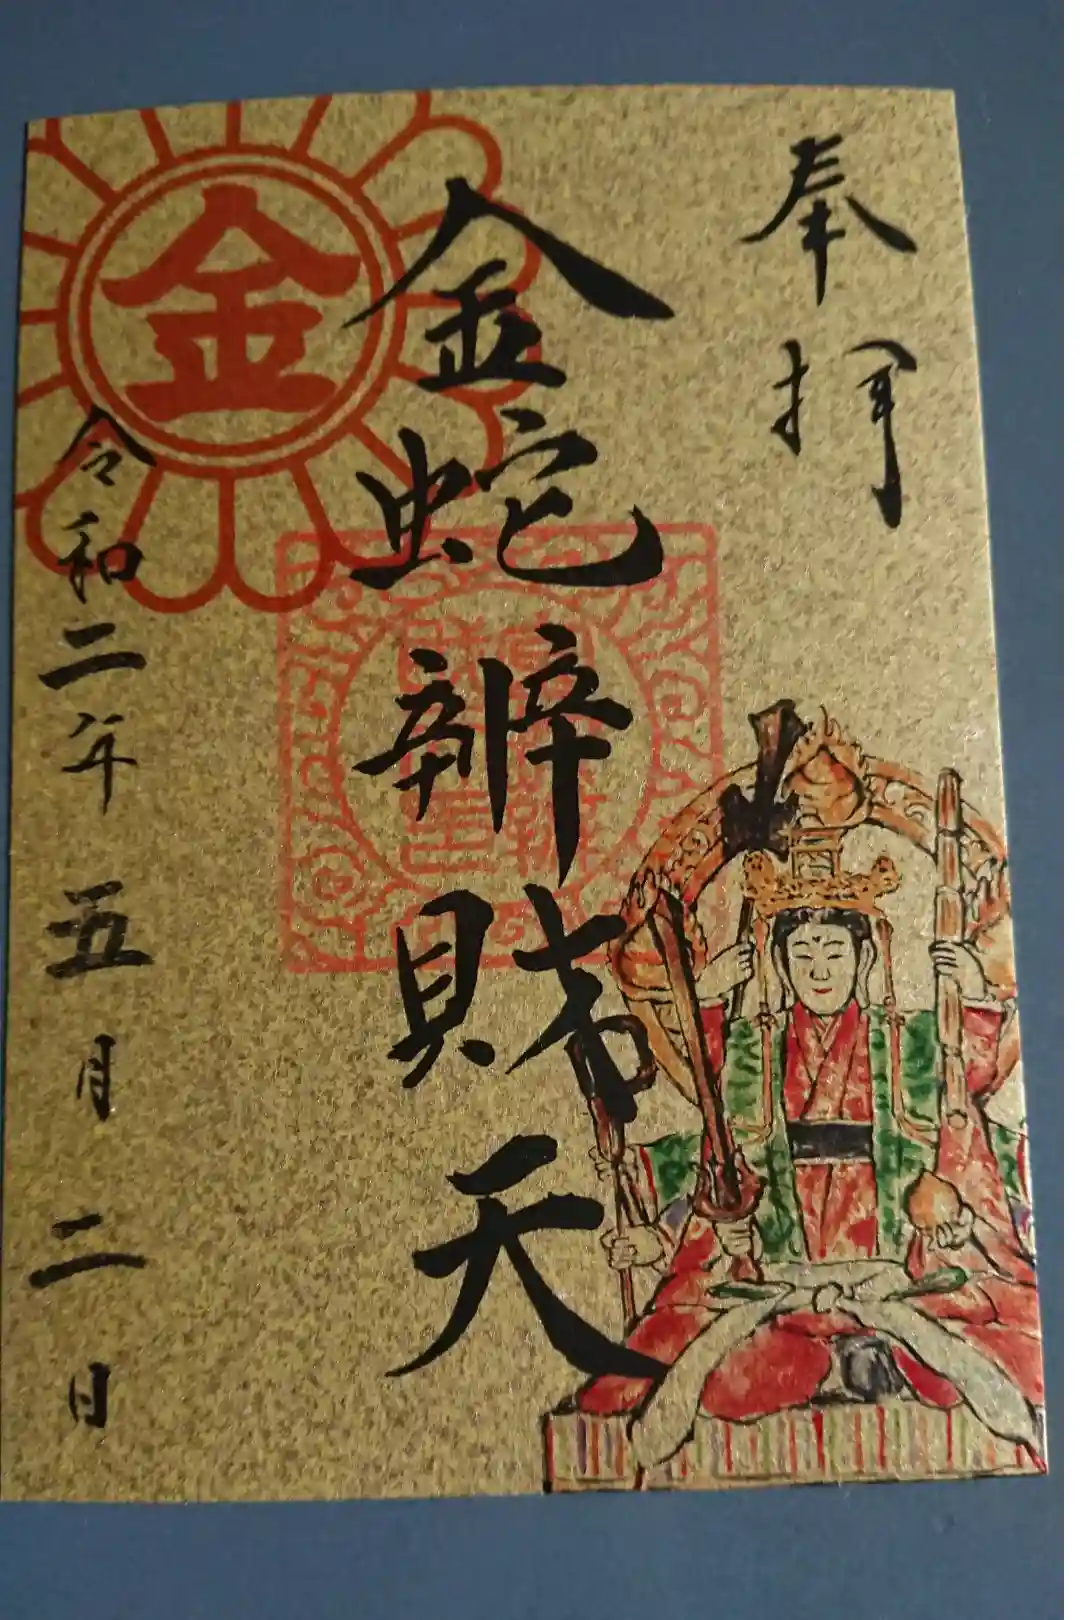 奉拝
金蛇辨財天
金
令和二年五月二日